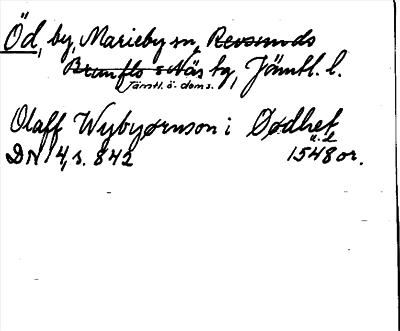 Öd, by, Marieby sn, Revsunds
Brunflo o Näs tg, Jämtl. l.
Jämtl. ö. doms.
Olaff Wybyørnson i Ødhet
DN 14, s. 842 1548 or.